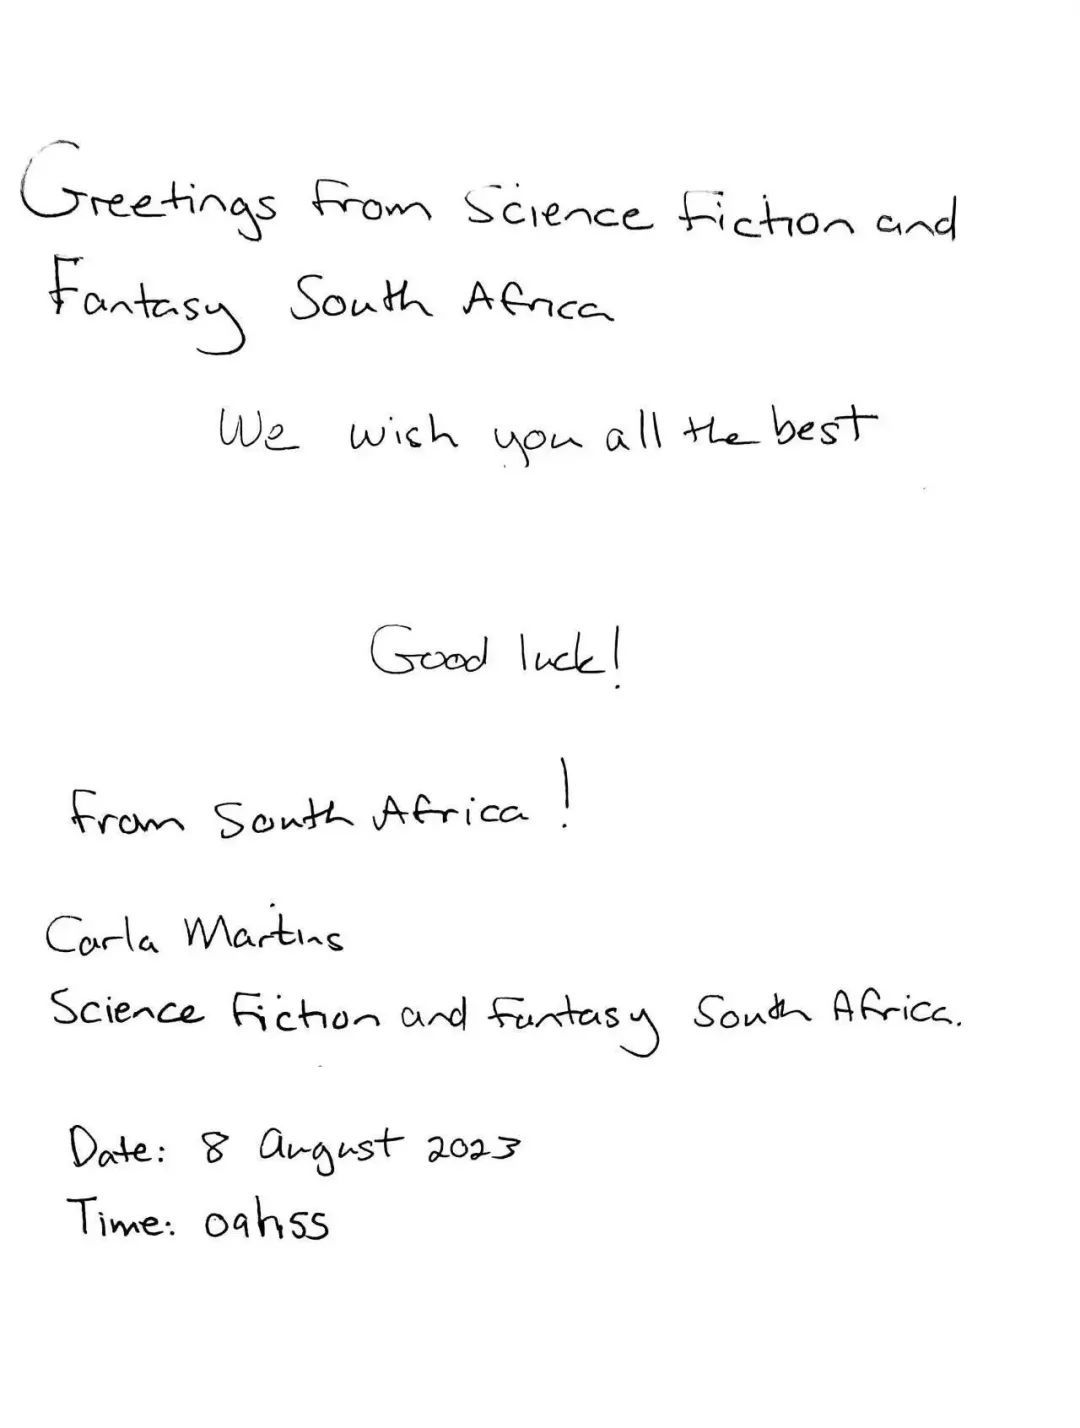 Greetings from Science Fiction and
Fantasy South Africa
We wish you all the best
Good luck!
From South Africa!
Carla Martins
Science Fiction and Fantasy South Africa.
Date: 8 August 2023
Time: 09h55